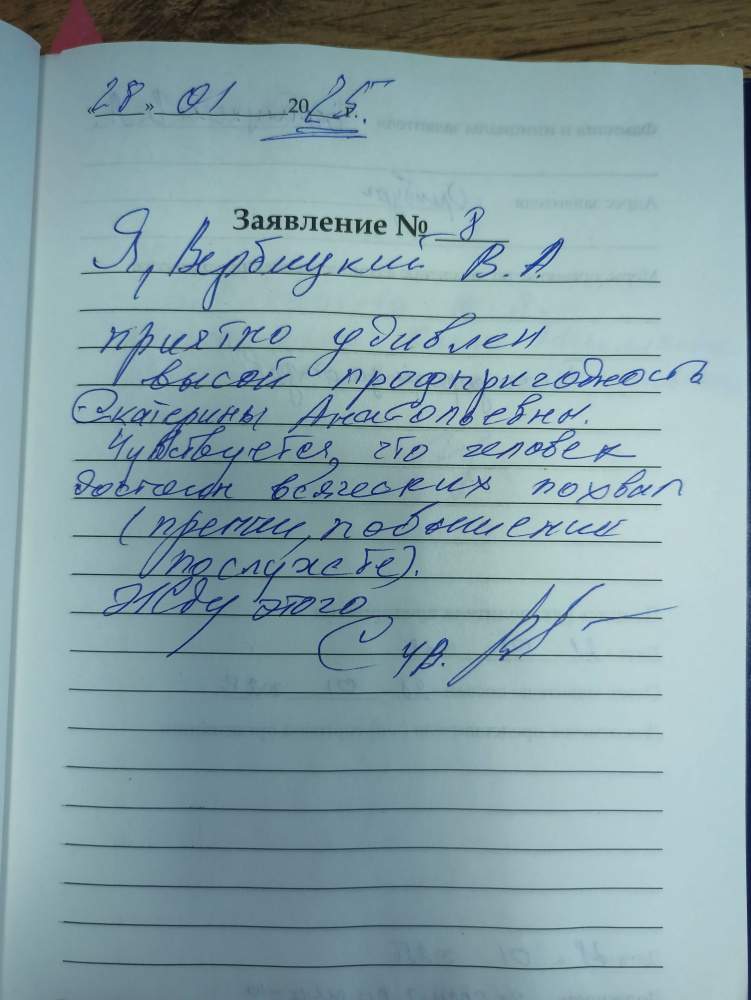 «28» 01 2025 г.
Заявление № 8
Я, Вербицкий В.А.
приятно удивлен
высой профпригодность
Екатерины Анатольевны.
Чувствуется, что человек
достоин всяческих похвал
(премии, повышения
по службе).
Жду этого
С ув.